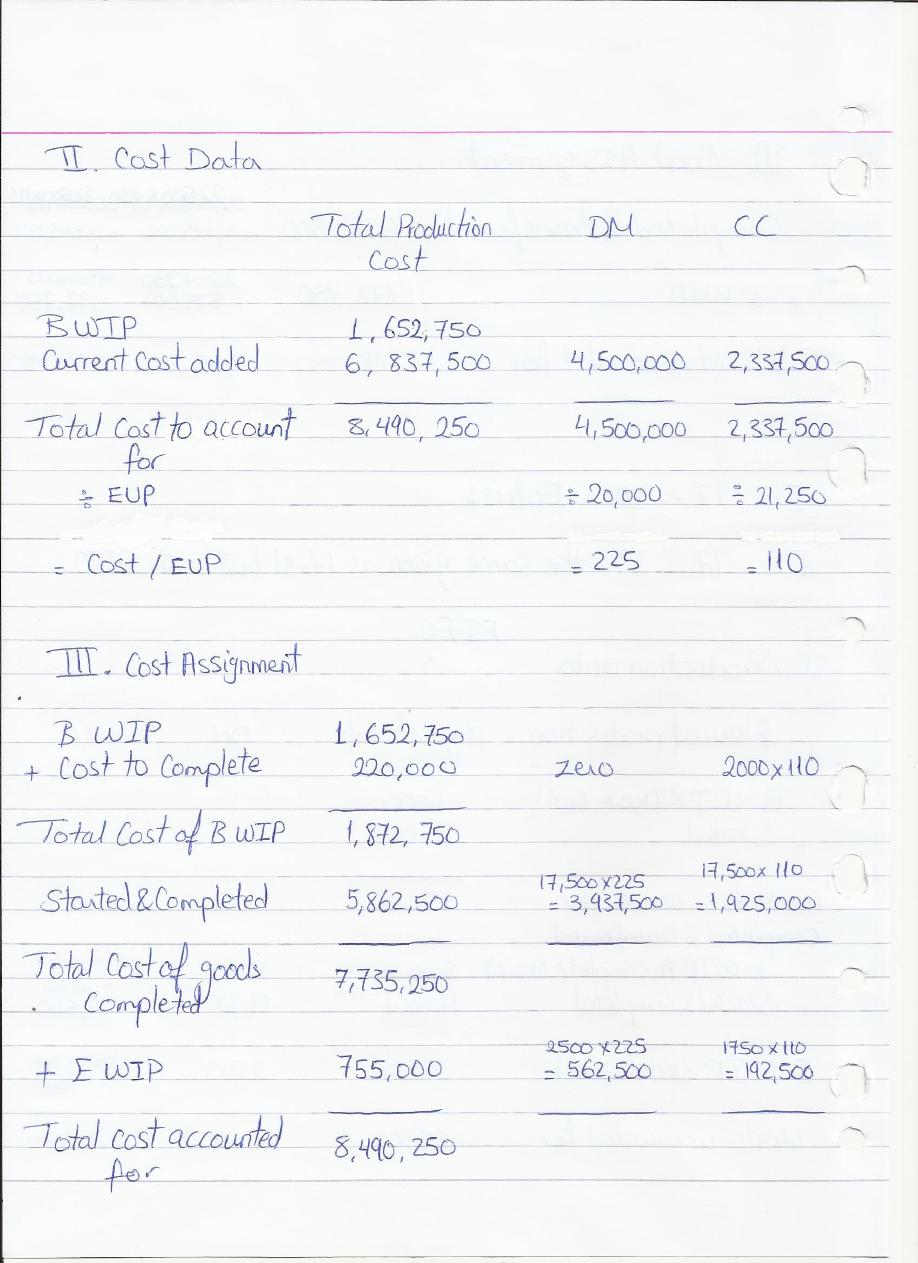 II. Cost Data
Total Production DM CC
Cost
B WIP 1,652,750
Current Cost added 6,837,500 4,500,000 2,337,500
Total Cost to account 8,490,250 4,500,000 2,337,500
for
÷ EUP ÷ 20,000 ÷ 21,250
= Cost / EUP = 225 = 110
III. Cost Assignment
B WIP 1,652,750
+ Cost to Complete 220,000 zero 2000 x 110
Total Cost of B WIP 1,872,750
17,500 x 225 17,500 x 110
Started & Completed 5,862,500 = 3,937,500 = 1,925,000
Total Cost of goods 7,735,250
Completed
2500 x 225 1750 x 110
+ E WIP 755,000 = 562,500 = 192,500
Total cost accounted 8,490,250
for